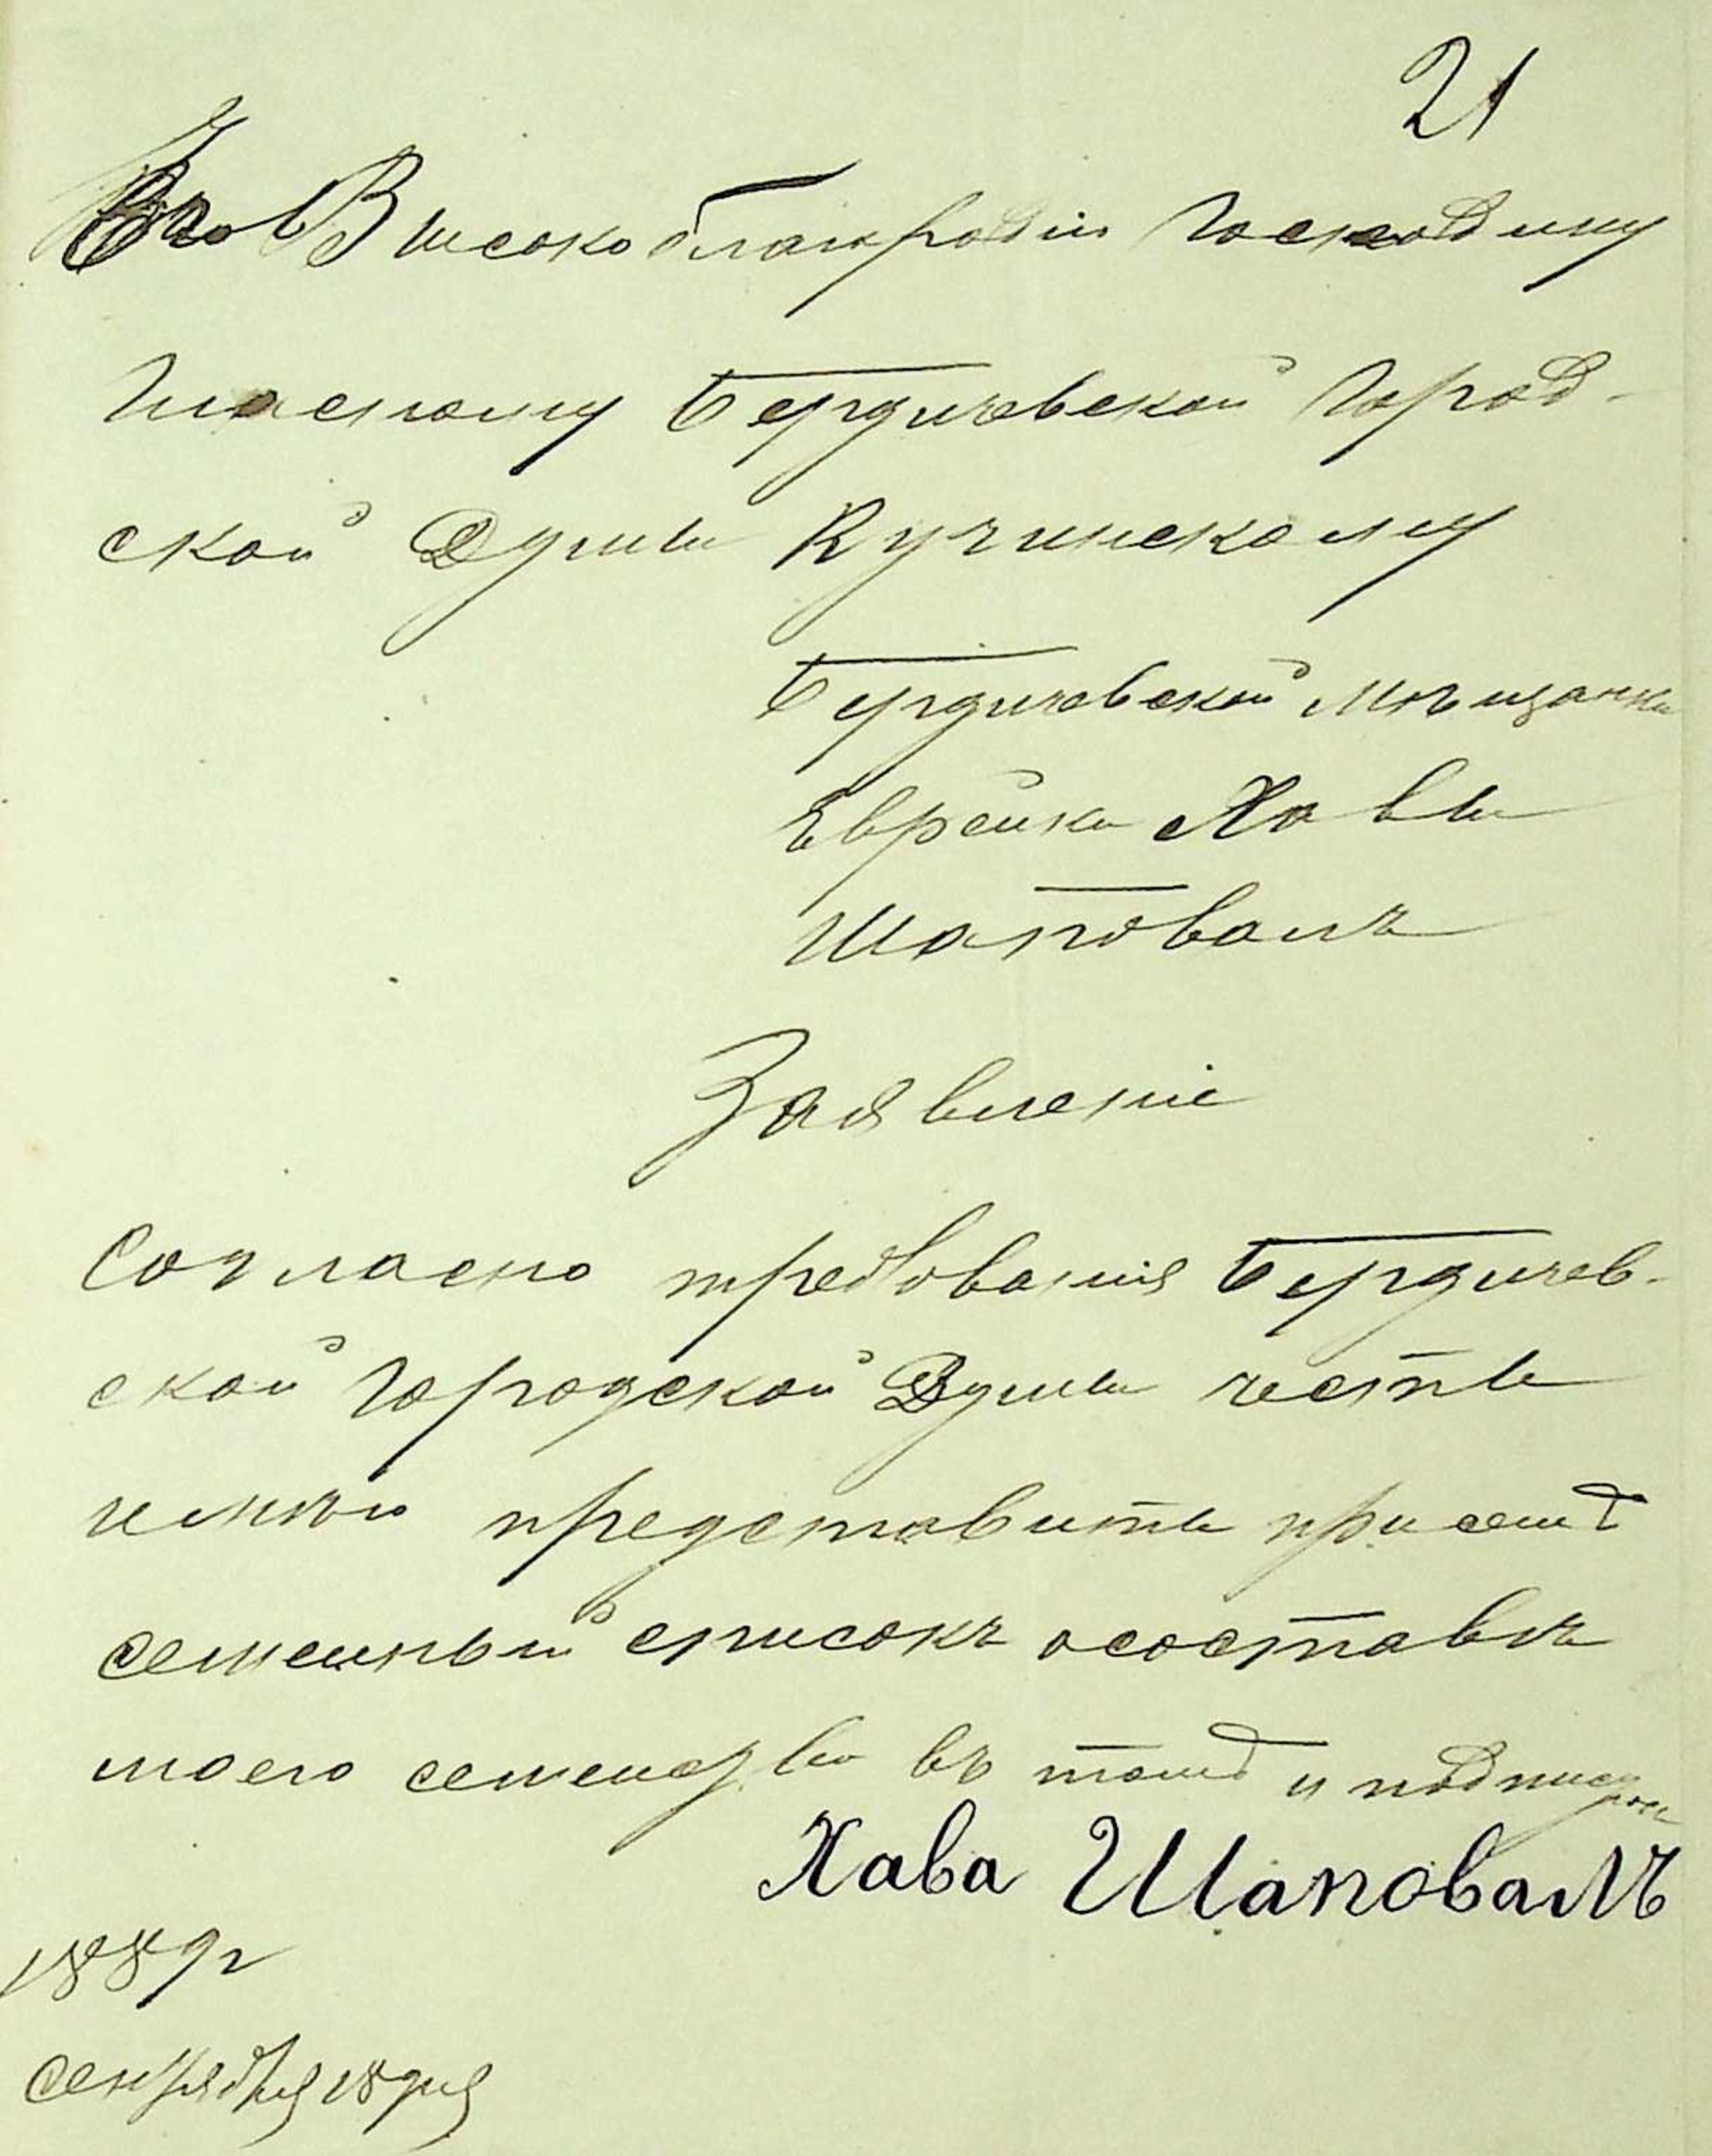 21
Его Високоблагородiю Господину
Гласному Бердичевской Город-
ской Думы Кучинскому
Бердичевской мѣщанки
Еврейки Хавы
Шаповалъ
Заявленiе
Согласно требованiя Бердичев-
ской Городской Думы честь
имѣю представить при семъ
семейный списокъ осоставѣ
моего семейства въ томъ и подписуюсь
Хава Шаповалъ
1889г
сентября 18 дня